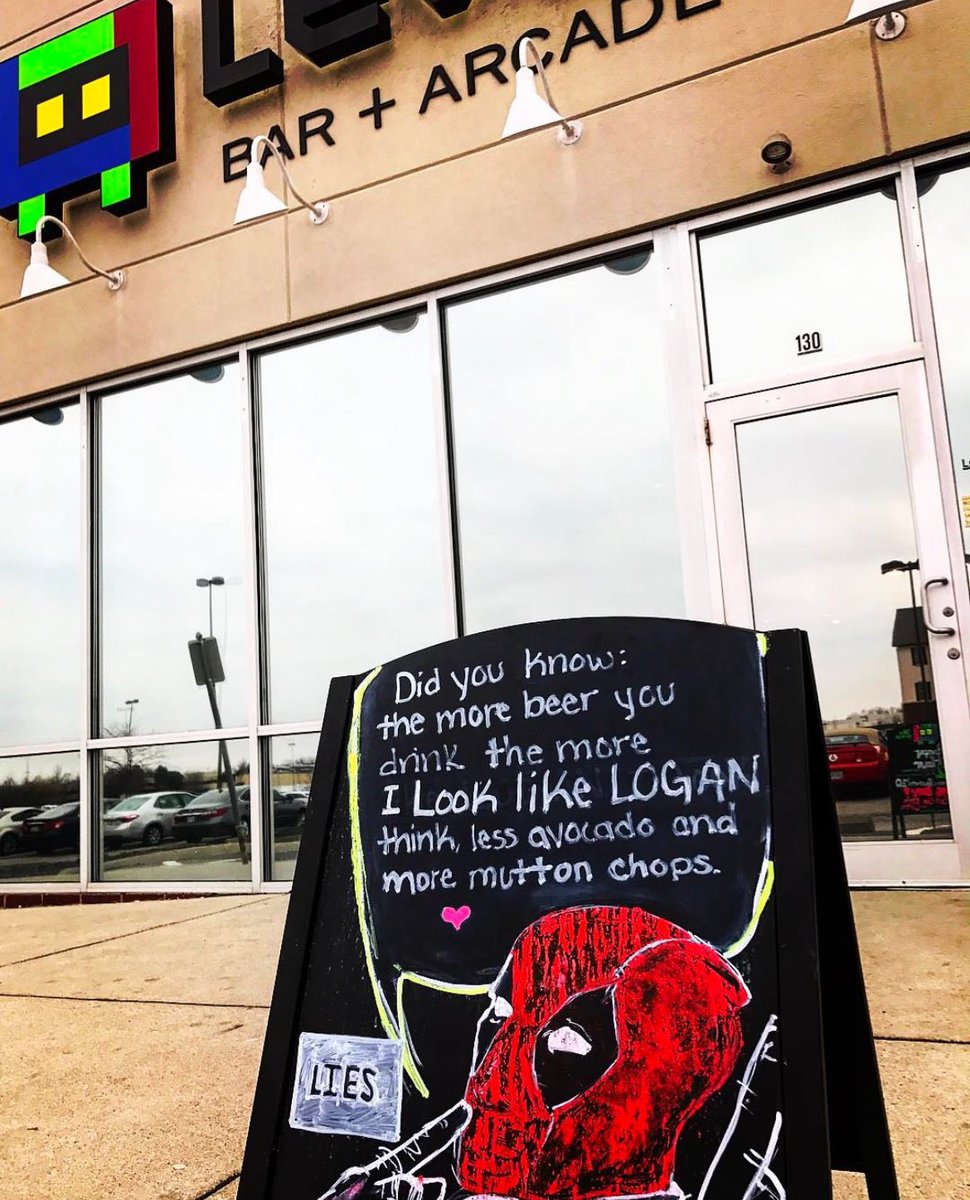 BAR + ARCADE
130
Did you know:
the more beer you
drink the more
I Look like LOGAN
think, less avocado and
more mutton chops.
LIES